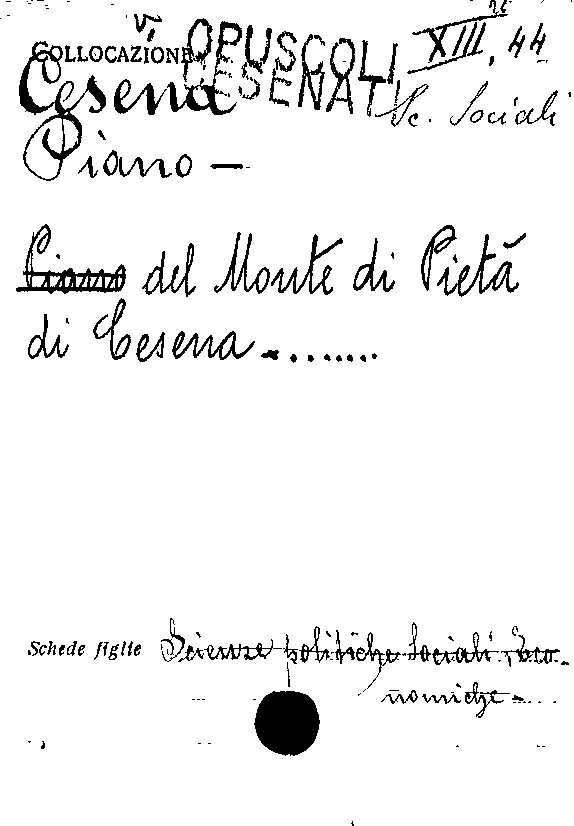 V,
COLLOCAZIONE OPUSCOLI XIII, 44
CESENATI
Cesena Sc. Sociali
Piano —
Piano del Monte di Pietà
di Cesena - . . . . . . .
Schede figlie Scienze politiche Sociali, Eco-
nomiche -